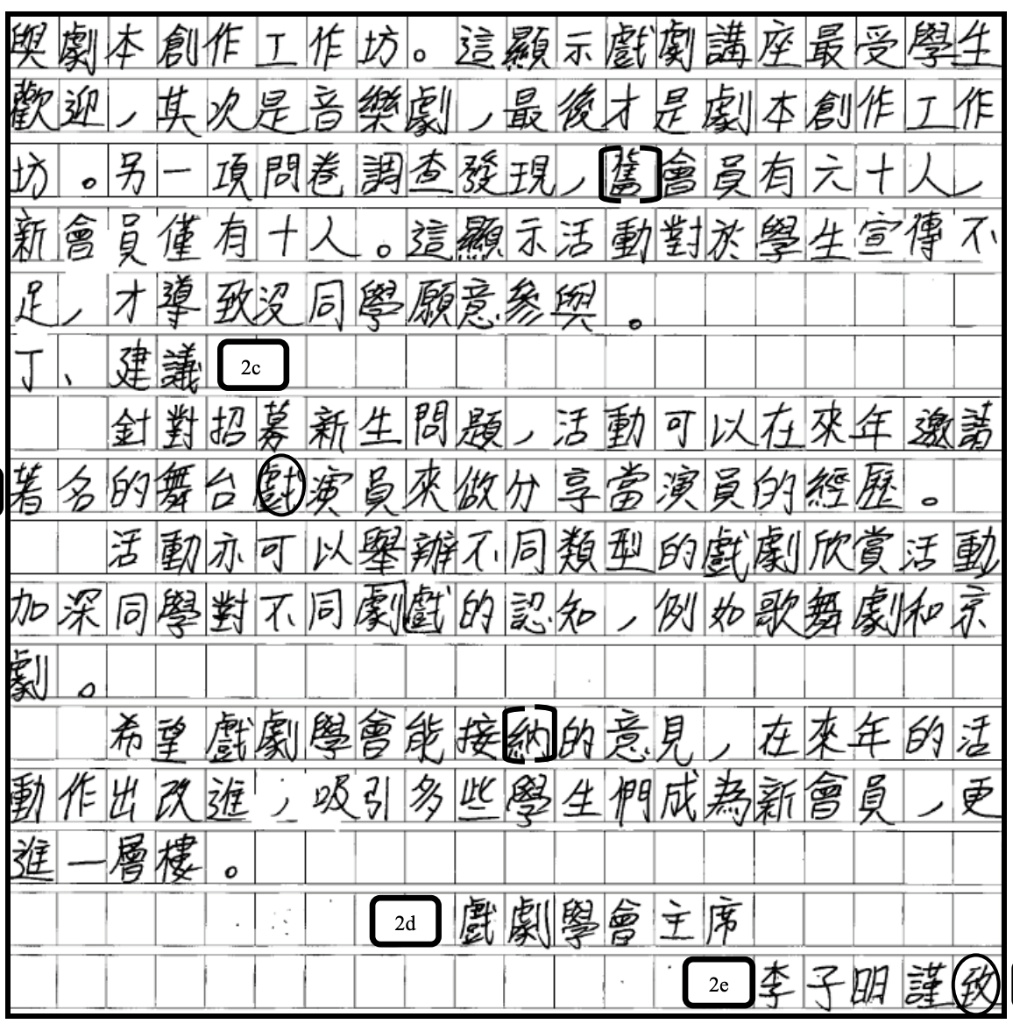 與劇本創作工作坊。這顯示戲劇講座最受學生
歡迎,其次是音樂劇,最後才是劇本創作工作
坊。另一項問卷調查發現,舊會員有六十人,
新會員僅有十人。這顯示活動對於學生宣傳不
足,才導致沒同學願意參與。
丁、建議 2c
針對招募新生問題,活動可以在來年邀請
著名的舞台戲演員來做分享當演員的經歷。
活動亦可以舉辦不同類型的戲劇欣賞活動
加深同學對不同劇戲的認知,例如歌舞劇和京
劇。
希望戲劇學會能接納的意見,在來年的活
動作出改進,吸引多些學生們成為新會員,更
進一層樓。
2d 戲劇學會主席
2e 李子明謹致